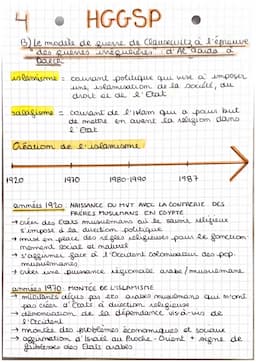 4 HGGSP
B) Le modèle de guerre de Clausewitz à l'épreuve
des guerres irrégulières : d'Al Qaida à
Daech
islamisme = courant politique qui vise à imposer
une islamisation de la société, du
droit et de l'Etat
salafisme = courant de l'islam qui a pour but
de mettre en avant la religion dans
l'Etat
Création de l'islamisme
1920 1970 1980-1990 1987
années 1920 : NAISSANCE DU MVT AVEC LA CONFRERIE DES
FRERES MUSULMANS EN EGYPTE
→ créer des Etats musulmans où le savoir religieux
s'impose à la direction politique
→ mise en place des règles religieuses pour le fonction
nement social et naturel
→ s'affirmer face à l'Occident colonisateur des pop.
musulmanes
→ créer une puissance régionale arabe / musulmane
années 1970 : MONTEE DE L'ISLAMISME
→ militants déçus par eta arabes musulmans qui n'ont
pas créer d'Etats à direction religieuse
→ dénonciation de la dépendance vis-à-vis de
l'Occident
→ montée des problèmes économiques et sociaux
→ affirmation d'Israël au Proche-Orient + signe de
faiblesse des Etats arabes